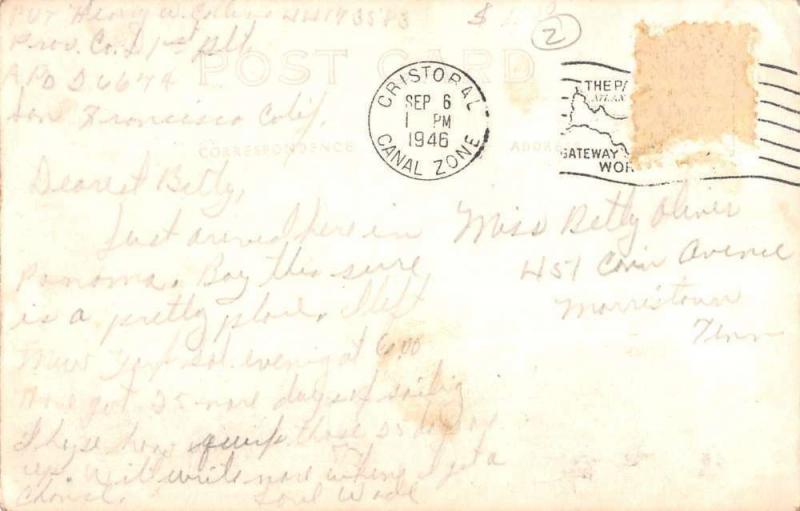 Pvt Henry W. Collins 44173583
Prov. Co. D 1st Plt
A.P.O. 26674
San Francisco Calif.
POST CARD
CORRESPONDENCE
ADDRE
CRISTOBAL
SEP 6
1 PM
1946
CANAL ZONE
THE PA
ATLAN
GATEWAY
WOR
2
Dearest Betty,
Just arrived here in
Panama. Boy this sure
is a pretty place. I left
New York sat. evening at 6:00
Have got 25 more days of sailing
I hope those 25 days
up Will write more when I get a
chance. Love Wade
Miss Betty Oliver
451 Avenue
Morristown
Tenn